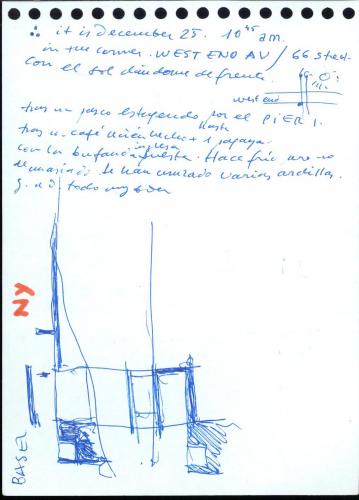 ∴ it is December 25. 10⁴⁵ am.
in the corner. WEST END AV / 66 street
con el sol dándome de frente.
66
west end
tras un paseo estupendo por el PIER 1.
tras un café recién hecho + 1 papaya.
hasta
con la bufanda inglesa puesta. Hace frío, no
demasiado. Se han cruzado varias ardillas.
todo muy
NY
BASEL